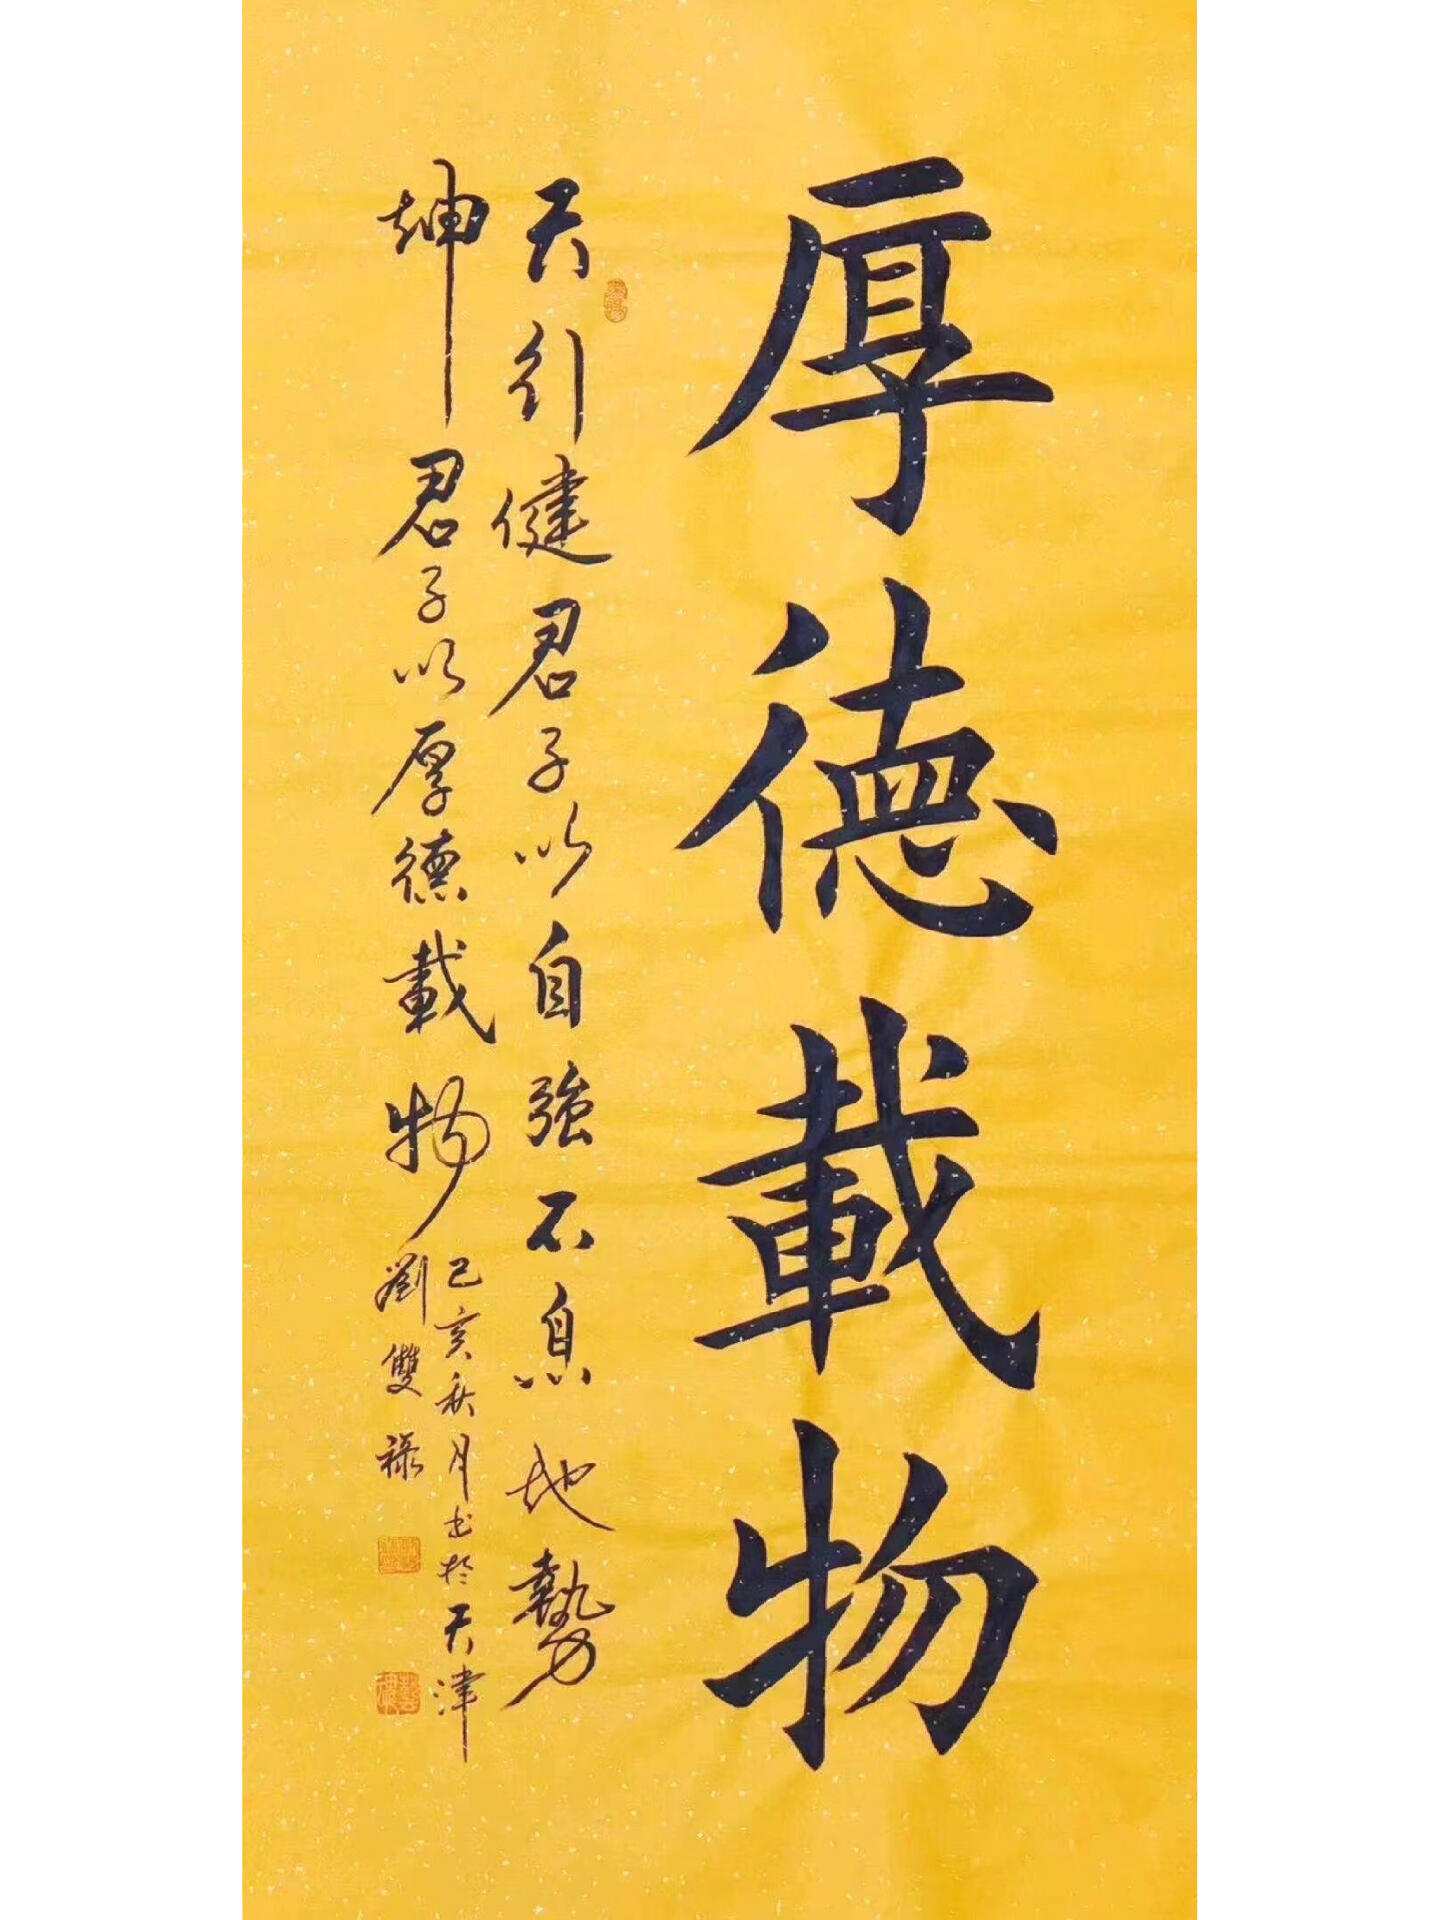 厚德載物
天行健君子以自強不息地勢
坤君子以厚德載物
己亥秋月书於天津
劉雙祿